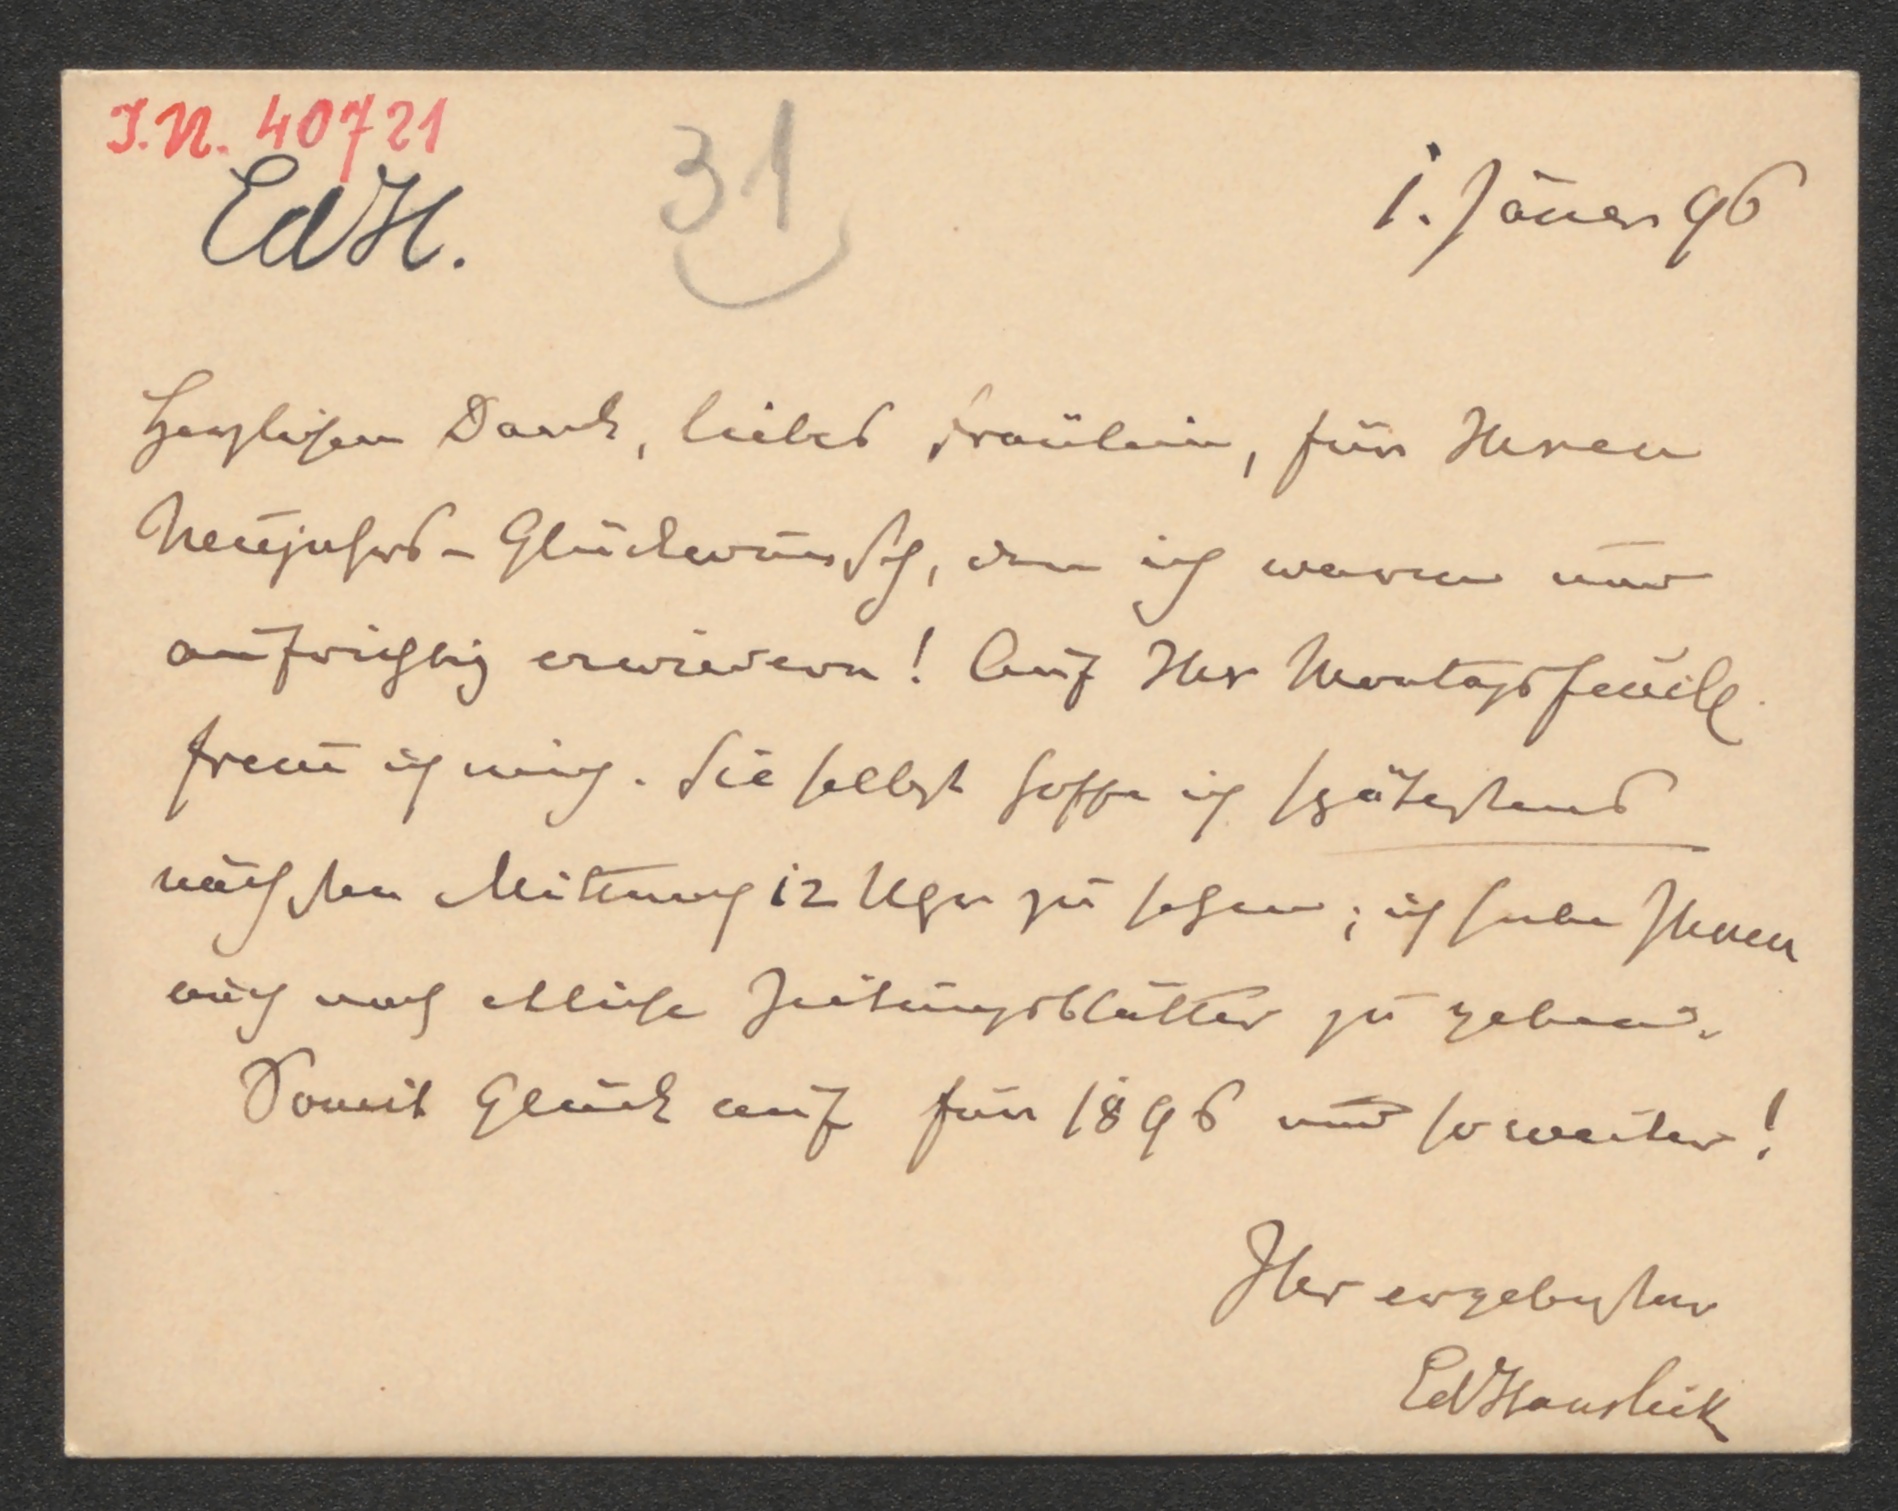 I.N. 40721
31
EdH.
1. Jäner 96
Herzlichen Dank, liebes Fräulein, für Ihren
Neujahrs-Glückwunsch, den ich warm und
aufrichtig erwiedern! Auf Ihr Montagsfeuill.
freue ich mich. Sie selbst hoffe ich spätestens
nächsten Mittwoch 12 Uhr zu sehen; ich habe Ihnen
auch noch etliche Zeitungsblätter zu geben.
Somit Glück auf für 1896 und so weiter!
Ihr ergebenster
EdHanslick